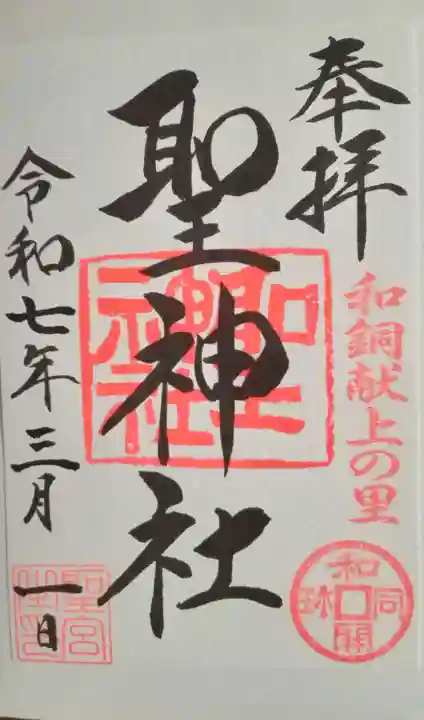 奉拝
和銅献上の里
和同開珎
聖神社
聖神社
令和七年三月一日
聖宮